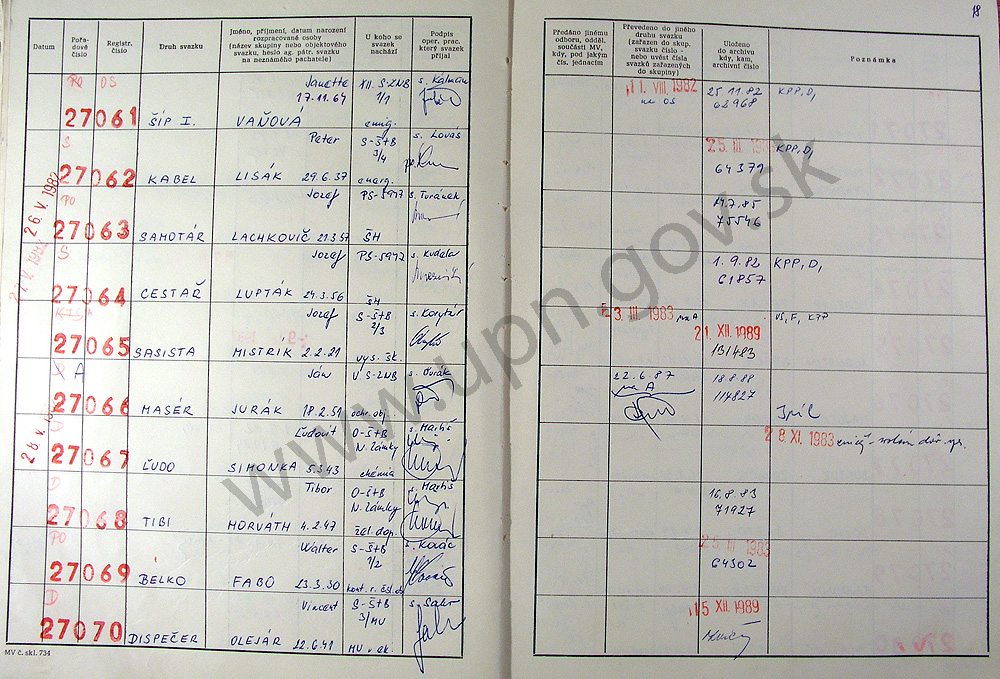 18
Datum
Pořa-
dové
číslo
Registr.
číslo
Druh svazku
Jméno, příjmení, datum narození
rozpracované osoby
(název skupiny nebo objektového
svazku, heslo ag. pátr. svazku
na neznámého pachatele)
U koho se
svazek
nachází
Podpis
oper. prac.
který svazek
přijal
Předáno jinému
odboru, odděl.
součásti MV,
kdy, pod jakým
čís. jednacím
Převedeno do jiného
druhu svazku
(zařazen do skup.
svazku číslo -
nebo uvést čísla
svazků zařazených
do skupiny)
Uloženo
do archivu
kdy, kam,
archivní číslo
Poznámka
PO OS Janette XII. S-ZNB s. Kalmán 11. VIII. 1982 25 11.82 KPP, D,
17.11.64 1/1 na OS 62968
27061 ŠÍP I. VAŇOVA emig.
S Peter S-ŠtB s. Lováš 25. III. 198 KPP, D,
3/4 64371
27062 KABEL LIŠÁK 29.6.37 emig.
26. V. 1982
PO Jozef PS-5947 s. Turánek 14.7.85
75546
27063 SAMOTÁR LACHKOVIČ 21.3.57 ŠH
S Jozef PS-5947 s. Kudela 1.9.82 KPP, D,
61857
27064 CESTAŘ LUPTÁK 24.3.56 ŠH
Jozef S-ŠtB s. Korytár 3. III. 1983 na A 21. XII. 1989
2/3 131483
27065 SASISTA MISTRÍK 2.2.21 vys. šk.
A Ján V. S-ZNB s. Ďurák 22.6.87 18.8.88
na A 114827
27066 MASÉR JURÁK 18.2.51 ochr. obj.
28. V.
D Ľudovít O-ŠtB s. Martiš 28. XI. 1983
N. Zámky
27067 ĽUDO SIMONKA 5.3.43 chémia
D Tibor O-ŠtB s. Martiš 16.8.83
N. Zámky 71927
27068 TIBI HORVÁTH 4.2.47 žel. dop.
PO Walter S-ŠtB s. Kováč 25. III. 1983
1/2 64302
27069 BELKO FABO 23.3.30
D Vincent S-ŠtB 15 XII. 1989
3/MV
27070 DISPEČER OLEJÁR 22.6.41 MV v ek.
MV č. skl. 734
www.upn.gov.sk